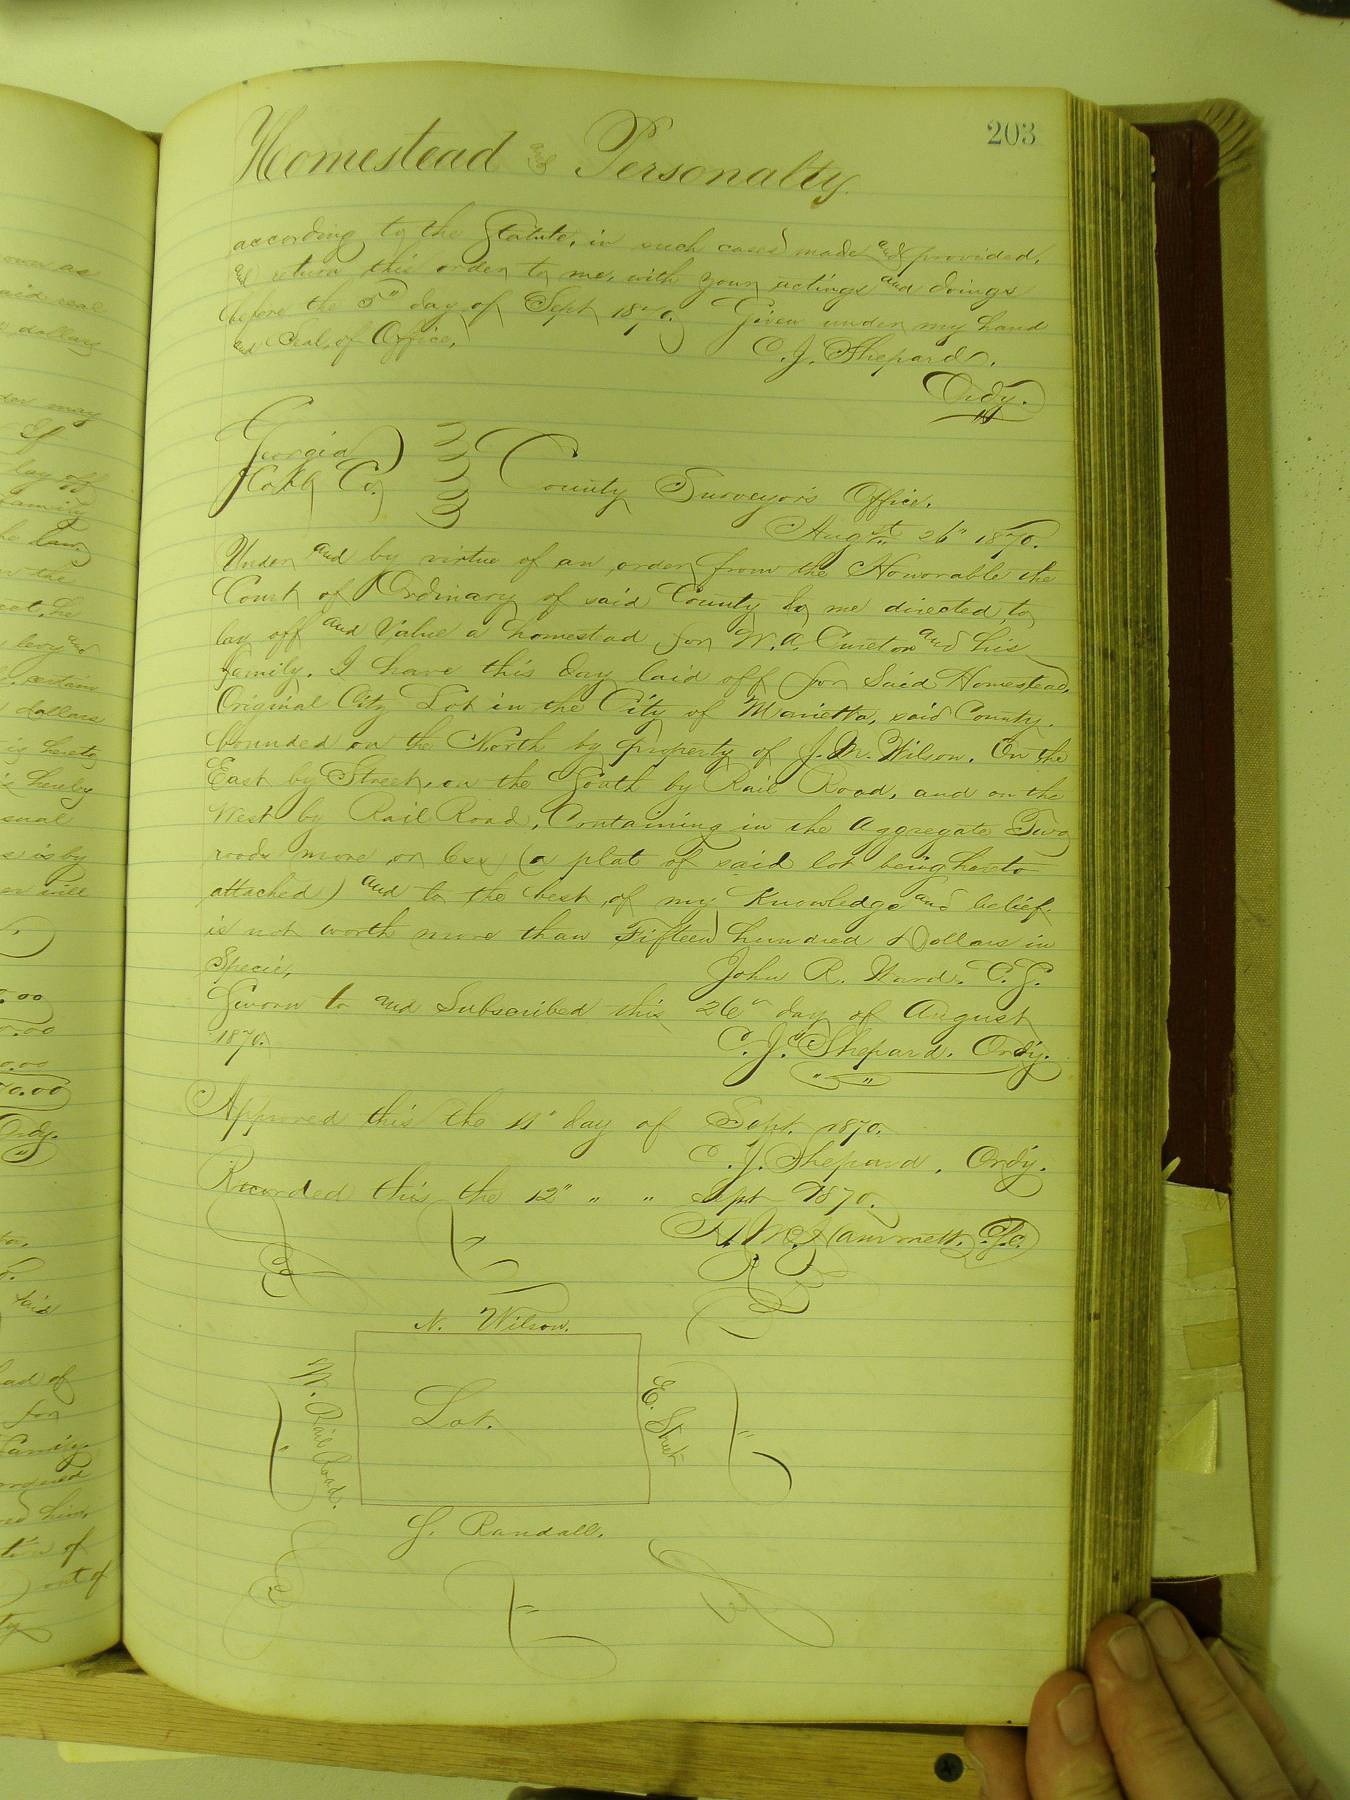 203
Homestead and Personalty.
according to the Statute, in such cases made and provided,
and return this order to me, with your actings and doings
before the 5th day of Sept 1870. Given under my hand
and Seal of Office.
C. J. Shepard.
Ordy.
Georgia
Cobb Co.
County Surveyor's Office.
August 26" 1870.
Under and by virtue of an order from the Honorable the
Court of Ordinary of said County to me directed, to
lay off and Value a homestead for W. A. Cureton and his
family. I have this day laid off for Said Homestead,
Original City Lot in the City of Marietta, said County.
bounded on the North by property of J. M. Wilson. On the
East by Street, on the South by Rail Road, and on the
West by Rail Road, Containing in the aggregate Two
roods more or less (a plat of said lot being hereto
attached) and to the best of my Knowledge and belief
is not worth more than Fifteen hundred Dollars in
Specie.
John R. Ward. C. S.
Sworn to and Subscribed this 26" day of August
1870.
C. J. Shepard. Ordy.
Approved this the 11" day of Sept. 1870.
C. J. Shepard. Ordy.
Recorded this the 12" " " Sept 1870.
Hammett
N. Wilson.
W. Rail Road.
Lot.
E. Street
S. Randall.
own as
said real
dollars
may
If
lay off
family
the law
the
levy and
certain
dollars
is hereto
hereby
usual
is by
will
.00
0.00
0.00
70.00
Ordy.
said
of
for
family
of
out of